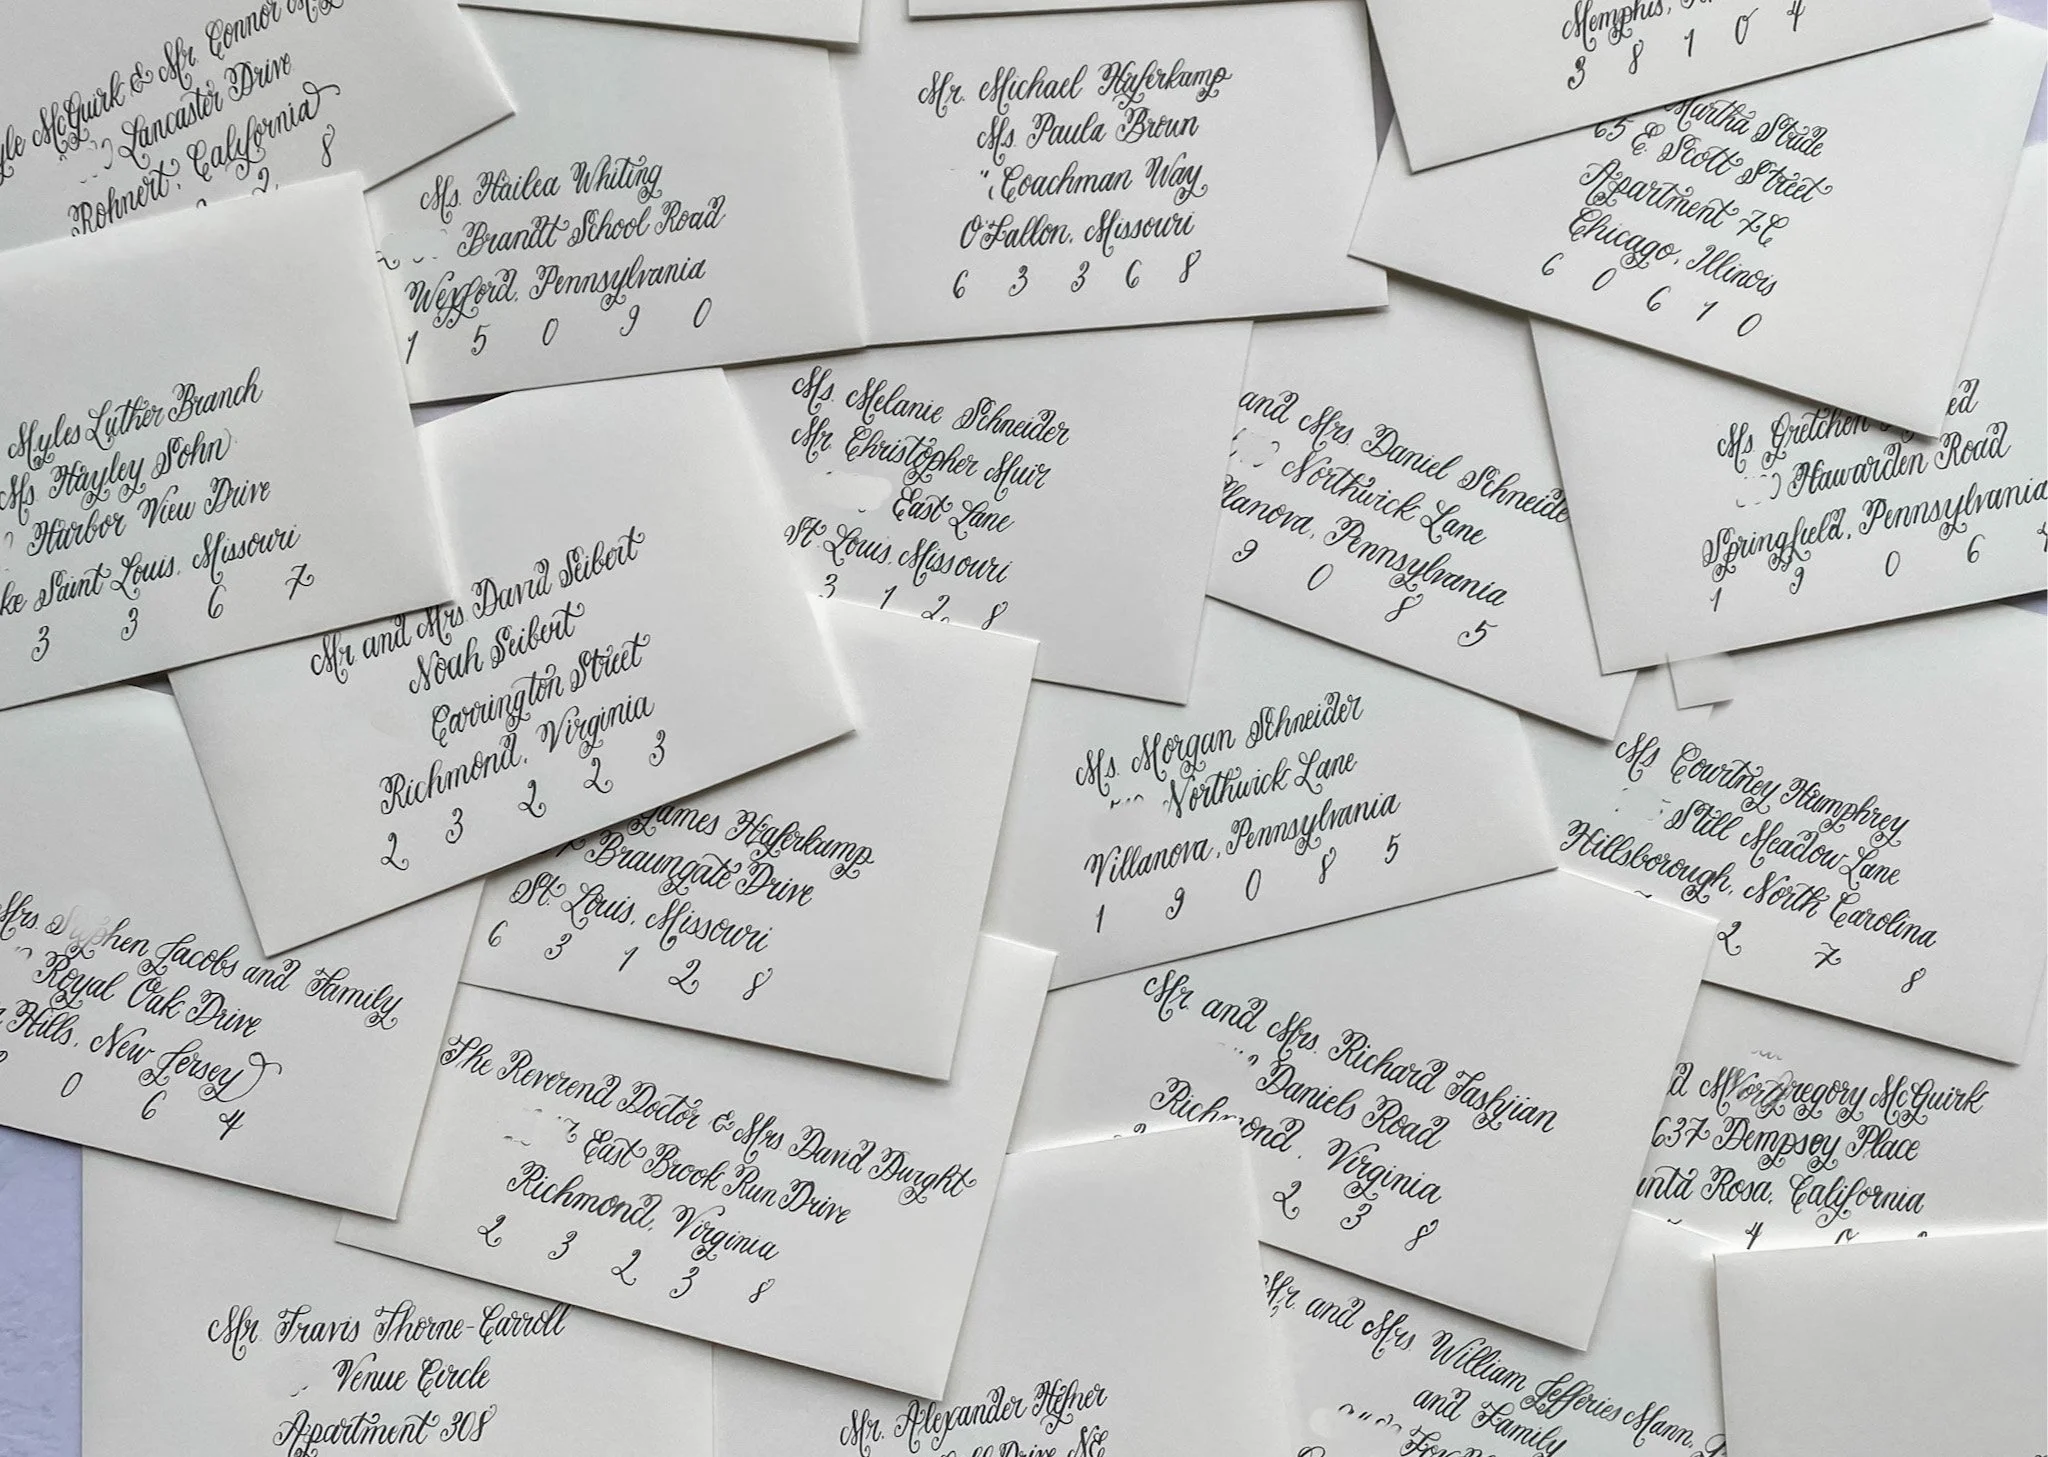 McGuirk & Mr. Connor
Lancaster Drive
Rohnert, California
2 8
Ms. Hailea Whiting
Brandt School Road
Wexford, Pennsylvania
1 5 0 9 0
Mr. Michael Haferkamp
Ms. Paula Brown
Coachman Way
O'Fallon, Missouri
6 3 3 6 8
Memphis,
3 8 1 0 4
Martha Stride
65 E. Scott Street
Apartment 7C
Chicago, Illinois
6 0 6 1 0
Myles Luther Branch
Ms. Hayley Sohn
Harbor View Drive
Saint Louis, Missouri
3 3 6 7
Mr and Mrs David Seibert
Noah Seibert
Carrington Street
Richmond, Virginia
2 3 2 2 3
Ms. Melanie Schneider
Mr. Christopher Muir
East Lane
St. Louis, Missouri
3 1 2 8
and Mrs. Daniel Schneide
Northwick Lane
llanova, Pennsylvania
9 0 8 5
Ms. Gretchen
Hawarden Road
Springfield, Pennsylvania
1 9 0 6
James Haferkamp
Braungate Drive
St. Louis, Missouri
6 3 1 2 8
Ms. Morgan Schneider
Northwick Lane
Villanova, Pennsylvania
1 9 0 8 5
Ms Courtney Humphrey
Still Meadow Lane
Hillsborough, North Carolina
2 7 8
Mrs. Stephen Jacobs and Family
Royal Oak Drive
Hills, New Jersey
0 6 4
The Reverend Doctor & Mrs David Durght
East Brook Run Drive
Richmond, Virginia
2 3 2 3 8
Mr. and Mrs. Richard Tashjian
Daniels Road
Richmond, Virginia
2 3 8
Gregory McGuirk
637 Dempsey Place
anta Rosa, California
4
Mr. Travis Thorne-Carroll
Venue Circle
Apartment 308
Mr. Alexander Hefner
Drive NE
Mr. and Mrs. William Jefferies Mann,
and Family